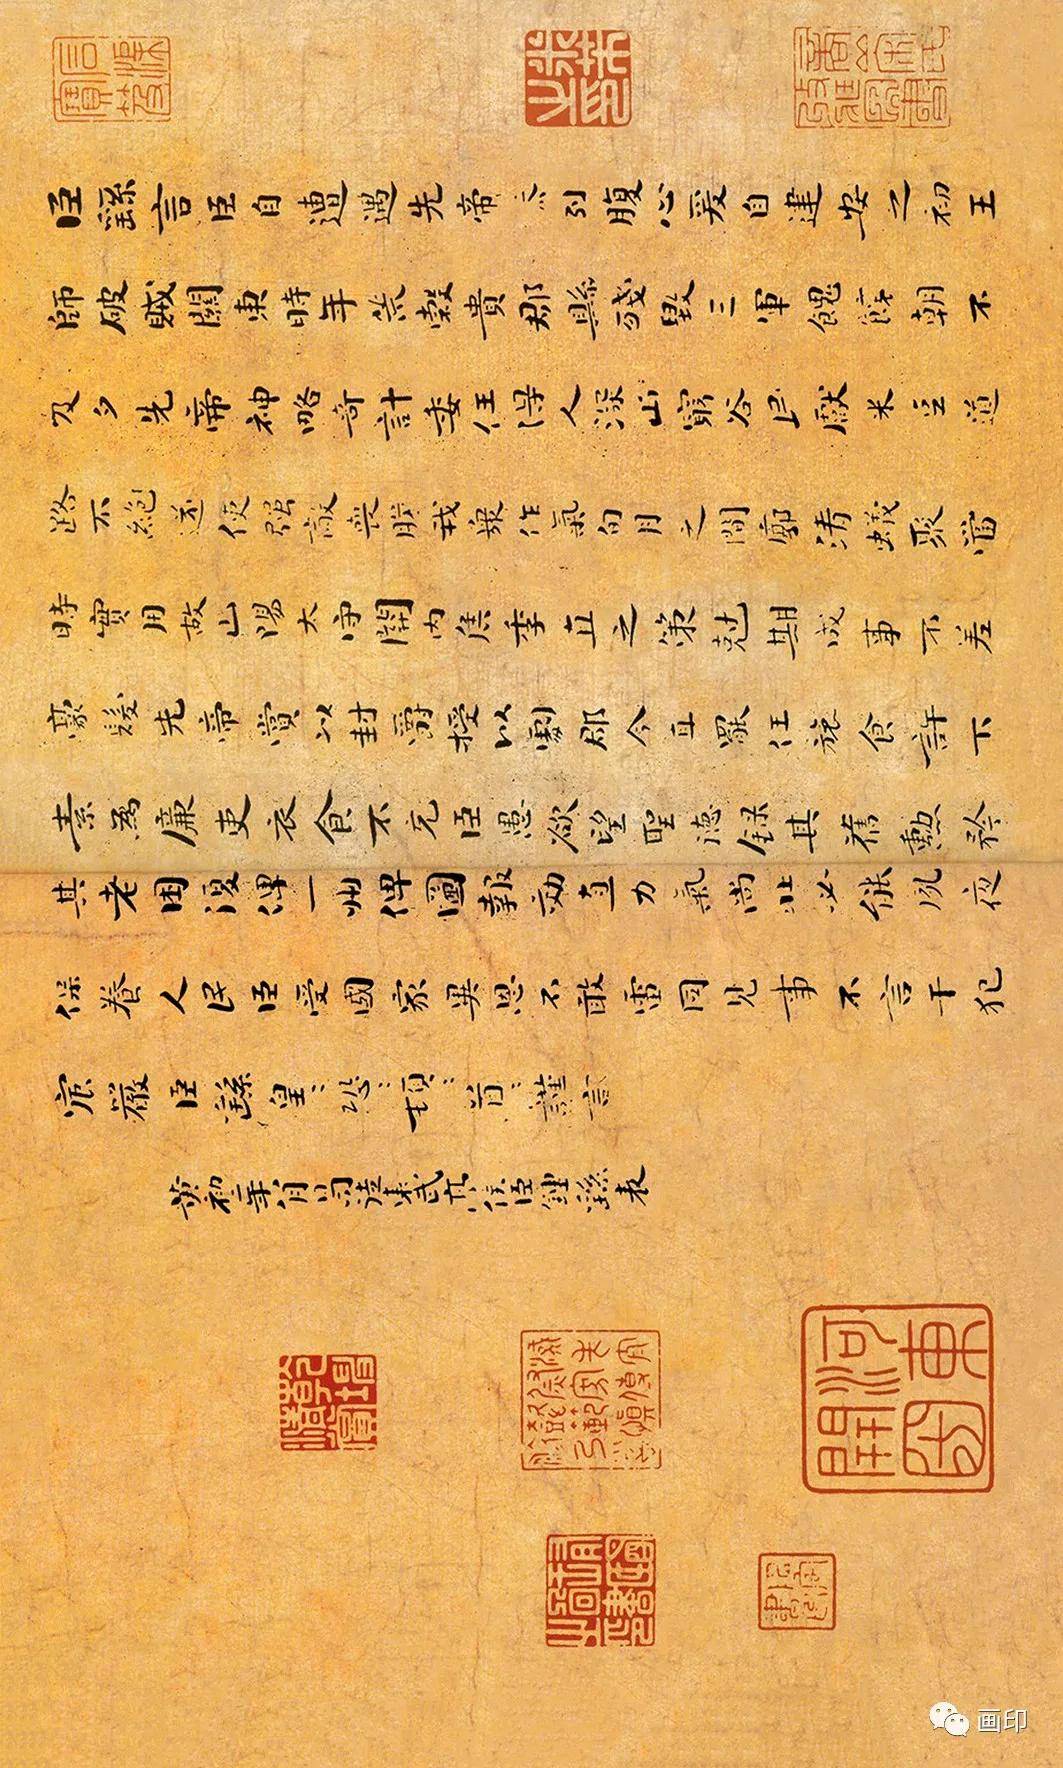 臣繇言臣自遭遇先帝忝列腹心爰自建安之初王
師破賊關東時年荒穀貴郡縣殘毀三軍餽饟朝不
及夕先帝神略奇計委任得人深山窮谷民獻米豆道
路不絕遂使強敵喪膽我衆作氣旬月之間廓清蟻聚當
時實用故山陽太守關內侯季直之策尅期成事不差
豪髮先帝賞以封爵授以劇郡今直罷任旅食許下
素為廉吏衣食不充臣愚欲望聖德錄其舊勳矜
其老困復俾一州俾圖報效直力氣尚壯必能夙夜
保養人民臣受國家異恩不敢雷同見事不言干犯
宸嚴臣繇皇〻恐〻頓〻首〻謹言
黃初二年八月日司徒東武亭侯臣鍾繇表
畫印